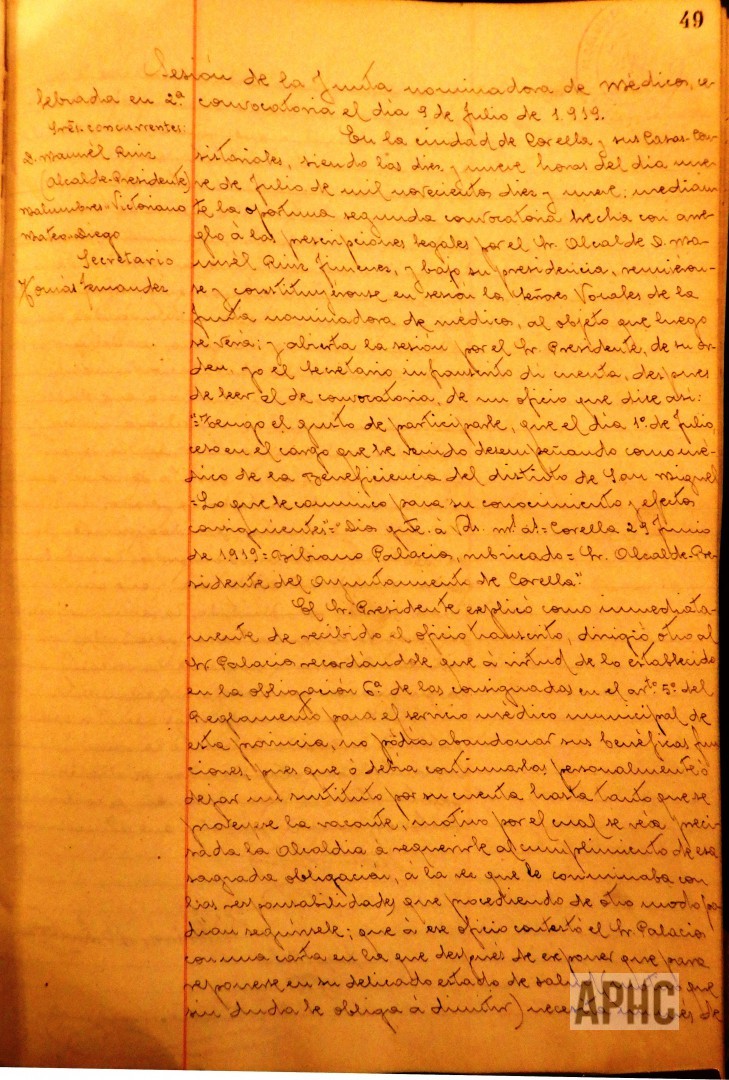 49
Sesión de la Junta nominadora de Médicos, ce-
lebrada en 2ª convocatoria el día 9 de Julio de 1.919.
Sres. concurrentes:
D. Manuel Ruiz
(Alcalde-Presidente)
Malumbres-Victoriano
Mateo-Diego
Secretario
Tomás Fernandez
En la ciudad de Corella y sus Casas-Con-
sistoriales, siendo las diez y nueve horas del día nue-
ve de Julio de mil novecientos diez y nueve; median-
te la oportuna segunda convocatoria hecha con arre-
glo á las prescripciones legales por el Sr. Alcalde D. Ma-
nuel Ruiz Jimenez, y bajo su presidencia, reuniéron-
se y constituyéronse en sesión la Señores Vocales de la
Junta nominadora de médicos, al objeto que luego
se verá; y abierta la sesión por el Sr. Presidente, de su ór-
den, yo el Secretario infrascrito dí cuenta, despues
de leer el de convocatoria, de un oficio que dice así:
"=Tengo el gusto de participarle, que el día 1º. de Julio,
ceso en el cargo que he venido desempeñando como mé-
dico de la Beneficiencia del distrito de San Miguel
=Lo que le comunico para su conocimiento y efectos
consiguientes"=Dios gue. á Vd. ms. as.=Corella 29 Junio
de 1919=Bibiano Palacios, rubricado=Sr. Alcalde-Pre-
sidente del Ayuntamiento de Corella".
El Sr. Presidente explicó como inmediata-
mente de recibido el oficio transcrito, dirigió otro al
Sr. Palacio recordándole que á virtud de lo establecido
en la obligación 6ª de las consignadas en el artº. 5º. del
Reglamento para el servicio médico municipal de
esta provincia, no pódia abandonar sus benéficas fun-
ciones, pues que ó debia continuarlas personalmente ó
dejar un sustituto por su cuenta hasta tanto que se
proveyese la vacante, motivo por el cual se veía preci-
sada la Alcaldía á requerirle al cumplimiento de esa
sagrada obligación, á la vez que le conminaba con
las responsabilidades que procediendo de otro modo po-
dían seguírsele; que á ese oficio contestó el Sr. Palacios
con una carta en la que después de exponer que para
reponerse en su delicado estado de salud (motivo que
sin duda le obliga á dimitir) necesita de
APHC